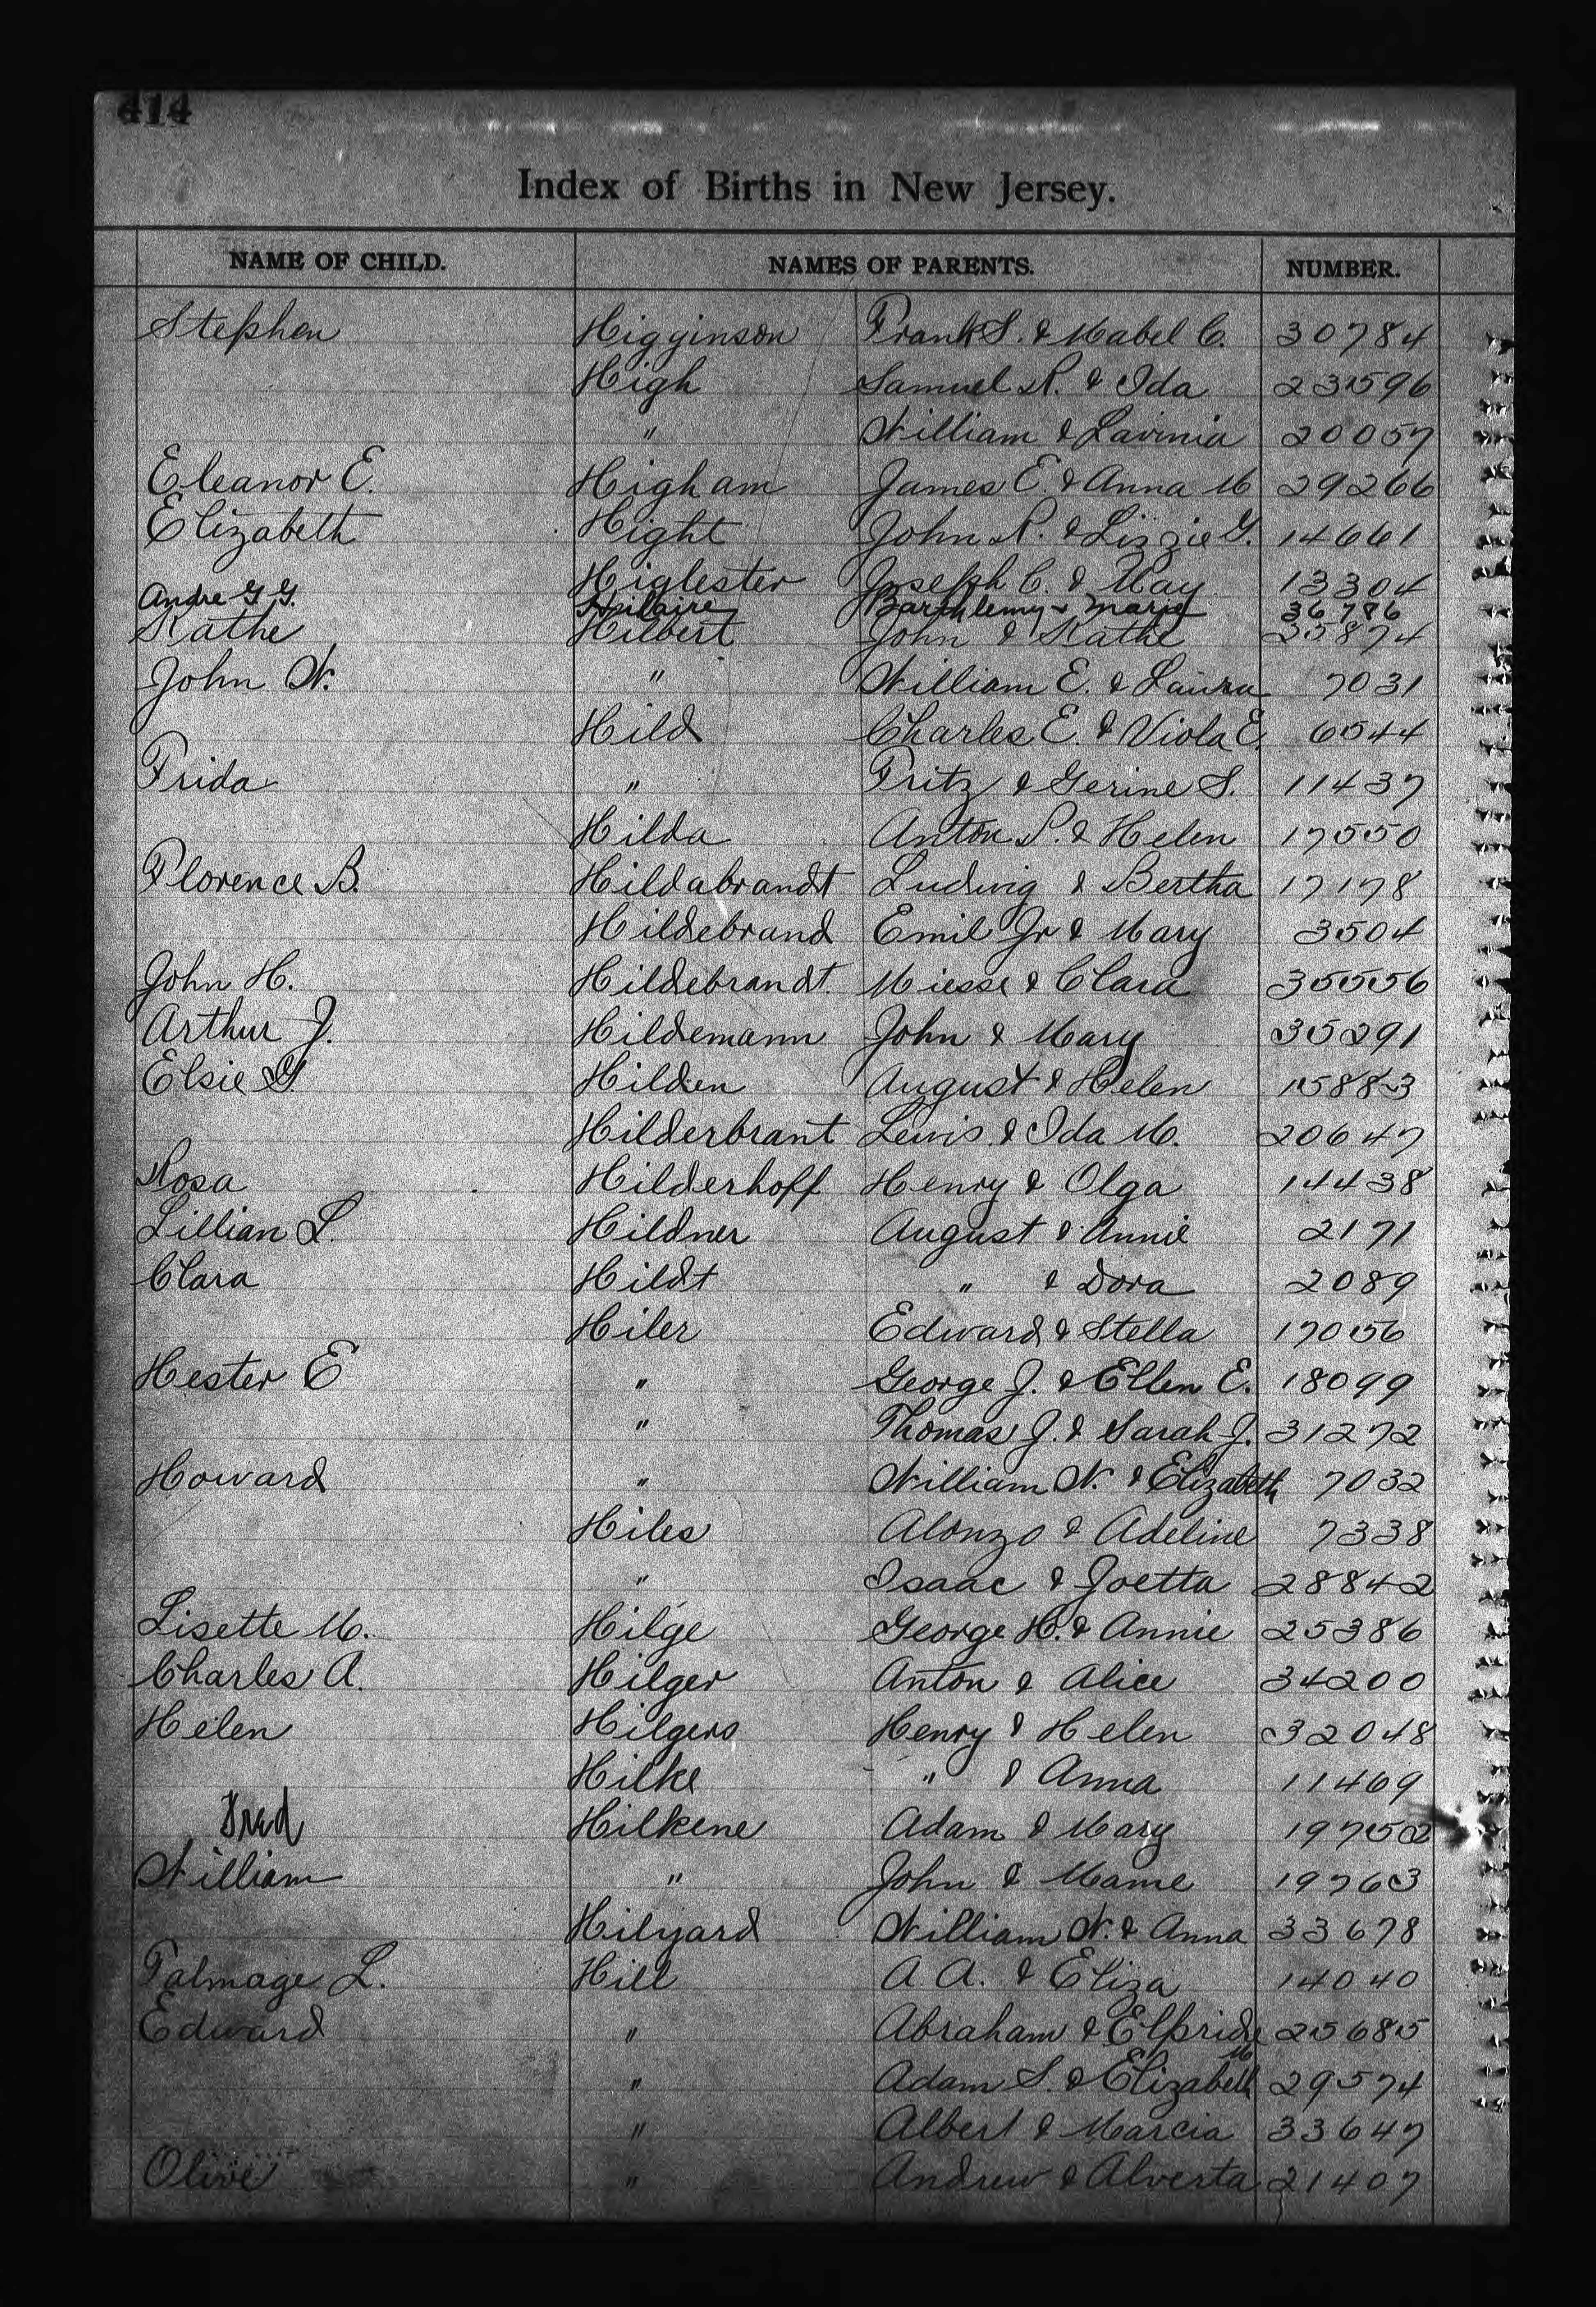 414
Index of Births in New Jersey.
NAME OF CHILD. NAMES OF PARENTS. NUMBER.
Stephen Higginson Frank S. & Mabel C. 30784
High Samuel R. & Ida 23596
" William & Lavinia 20057
Eleanor E. Higham James E. & Anna M 29266
Elizabeth Hight John R. & Lizzie G. 14661
Higlester Joseph C. & May 13304
Andre G G. Hilaire Barthlemy & Marie 36786
Kathe Hilbert John & Kathe 35874
John W. " William E. & Laura 7031
Hild Charles E. & Viola E. 6544
Frida " Fritz & Gerine S. 11437
Hilda Anton P. & Helen 17550
Florence B. Hildabrandt Ludwig & Bertha 17178
Hildebrand Emil Jr & Mary 3504
John H. Hildebrandt Miesse & Clara 35556
Arthur J. Hildemann John & Mary 35291
Elsie G Hilden August & Helen 15883
Hilderbrant Lewis & Ida M. 20647
Rosa Hilderhoff Henry & Olga 14438
Lillian L. Hildner August & Annie 2171
Clara Hildt " & Dora 2089
Hiler Edward & Stella 17056
Hester E " George J. & Ellen E. 18099
" Thomas J. & Sarah J. 31272
Howard " William W. & Elizabeth 7032
Hiles Alonzo & Adeline 7338
" Isaac & Joetta 28842
Lisette M. Hilge George H. & Annie 25386
Charles A. Hilger Anton & Alice 34200
Helen Hilgers Henry & Helen 32048
Hilke " & Anna 11469
Fred Hilkene Adam & Mary 19752
William " John & Mame 19763
Hilyard William W. & Anna 33678
Talmage L. Hill A A. & Eliza 14040
Edward " Abraham & Elfride 25685
" Adam S. & Elizabeth M 29574
" Albert & Marcia 33647
Olive " Andrew & Alverta 21407